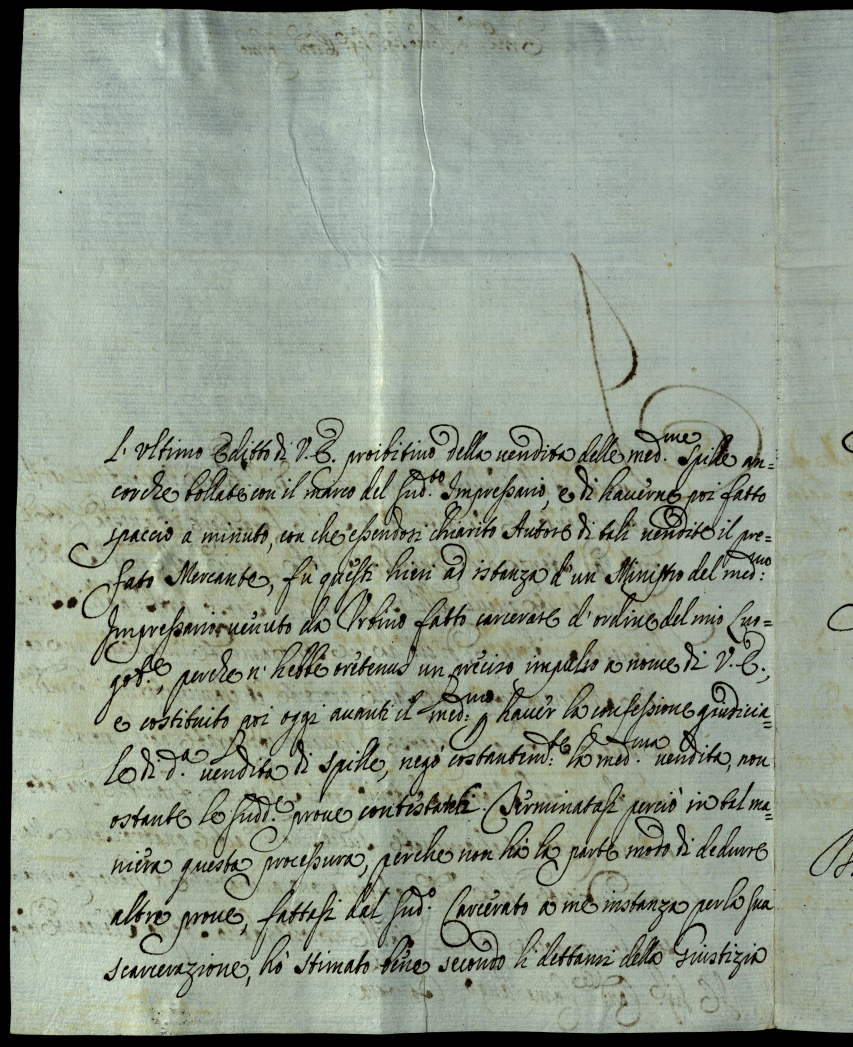 L'vltimo Editto di V. E. proibitiuo della uendita delle med.me Spille an=
corche bollate con il marco del sud.to Impressario, e di hauerne poi fatto
spaccio a minuto, con che essendosi chiarito Autore di tali uendite il pre=
fato Mercante, fù questi hieri ad istanza d'un Ministro del med.mo
Impressario uenuto da Vrbino fatto carcerare d'ordine del mio Luo=
got.e, perche n'hebbe oretenus un preciso impulso a nome di V. E.,
e costituito poi oggi auanti il med.mo p hauer la confessione giudicia=
le di d.a uendita di spille, negò costantem.te la med.ma uendita, non
ostante le sudd.e proue contestateli. Terminatasi perciò in tal ma=
niera questa processura, perche non hà la parte modo di dedurre
altre proue, fattasi dal sud.o Carcerato a me instanza per la sua
scarcerazione, hò stimato bene secondo li dettami della Giustizia